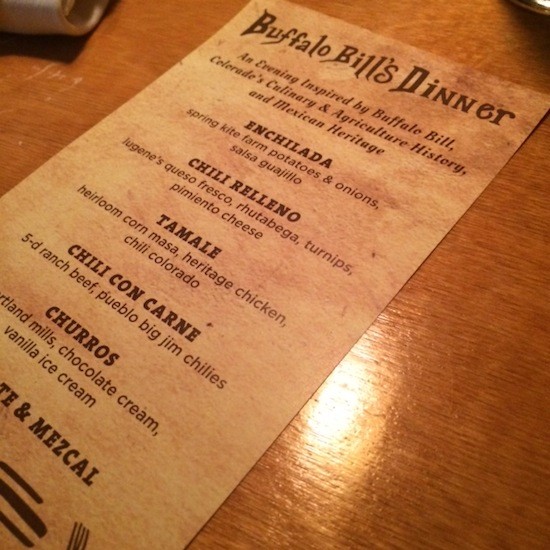 Buffalo Bill's Dinner
An Evening Inspired by Buffalo Bill,
Colorado's Culinary & Agriculture History,
and Mexican Heritage
ENCHILADA
spring kite farm potatoes & onions,
salsa guajillo
CHILI RELLENO
lugene's queso fresco, rhutabega, turnips,
pimiento cheese
TAMALE
heirloom corn masa, heritage chicken,
chili colorado
CHILI CON CARNE
5-d ranch beef, pueblo big jim chilies
CHURROS
mills, chocolate cream,
vanilla ice cream
& MEZCAL